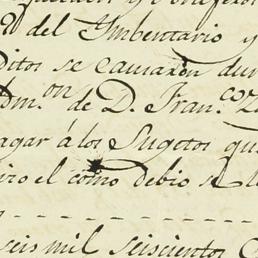 del Ymbentario y
ditos se causaron dur
Adm.on de D. Fran.co
agar á los Sugetos qu
el cómo debio se
seis mil seiscientos